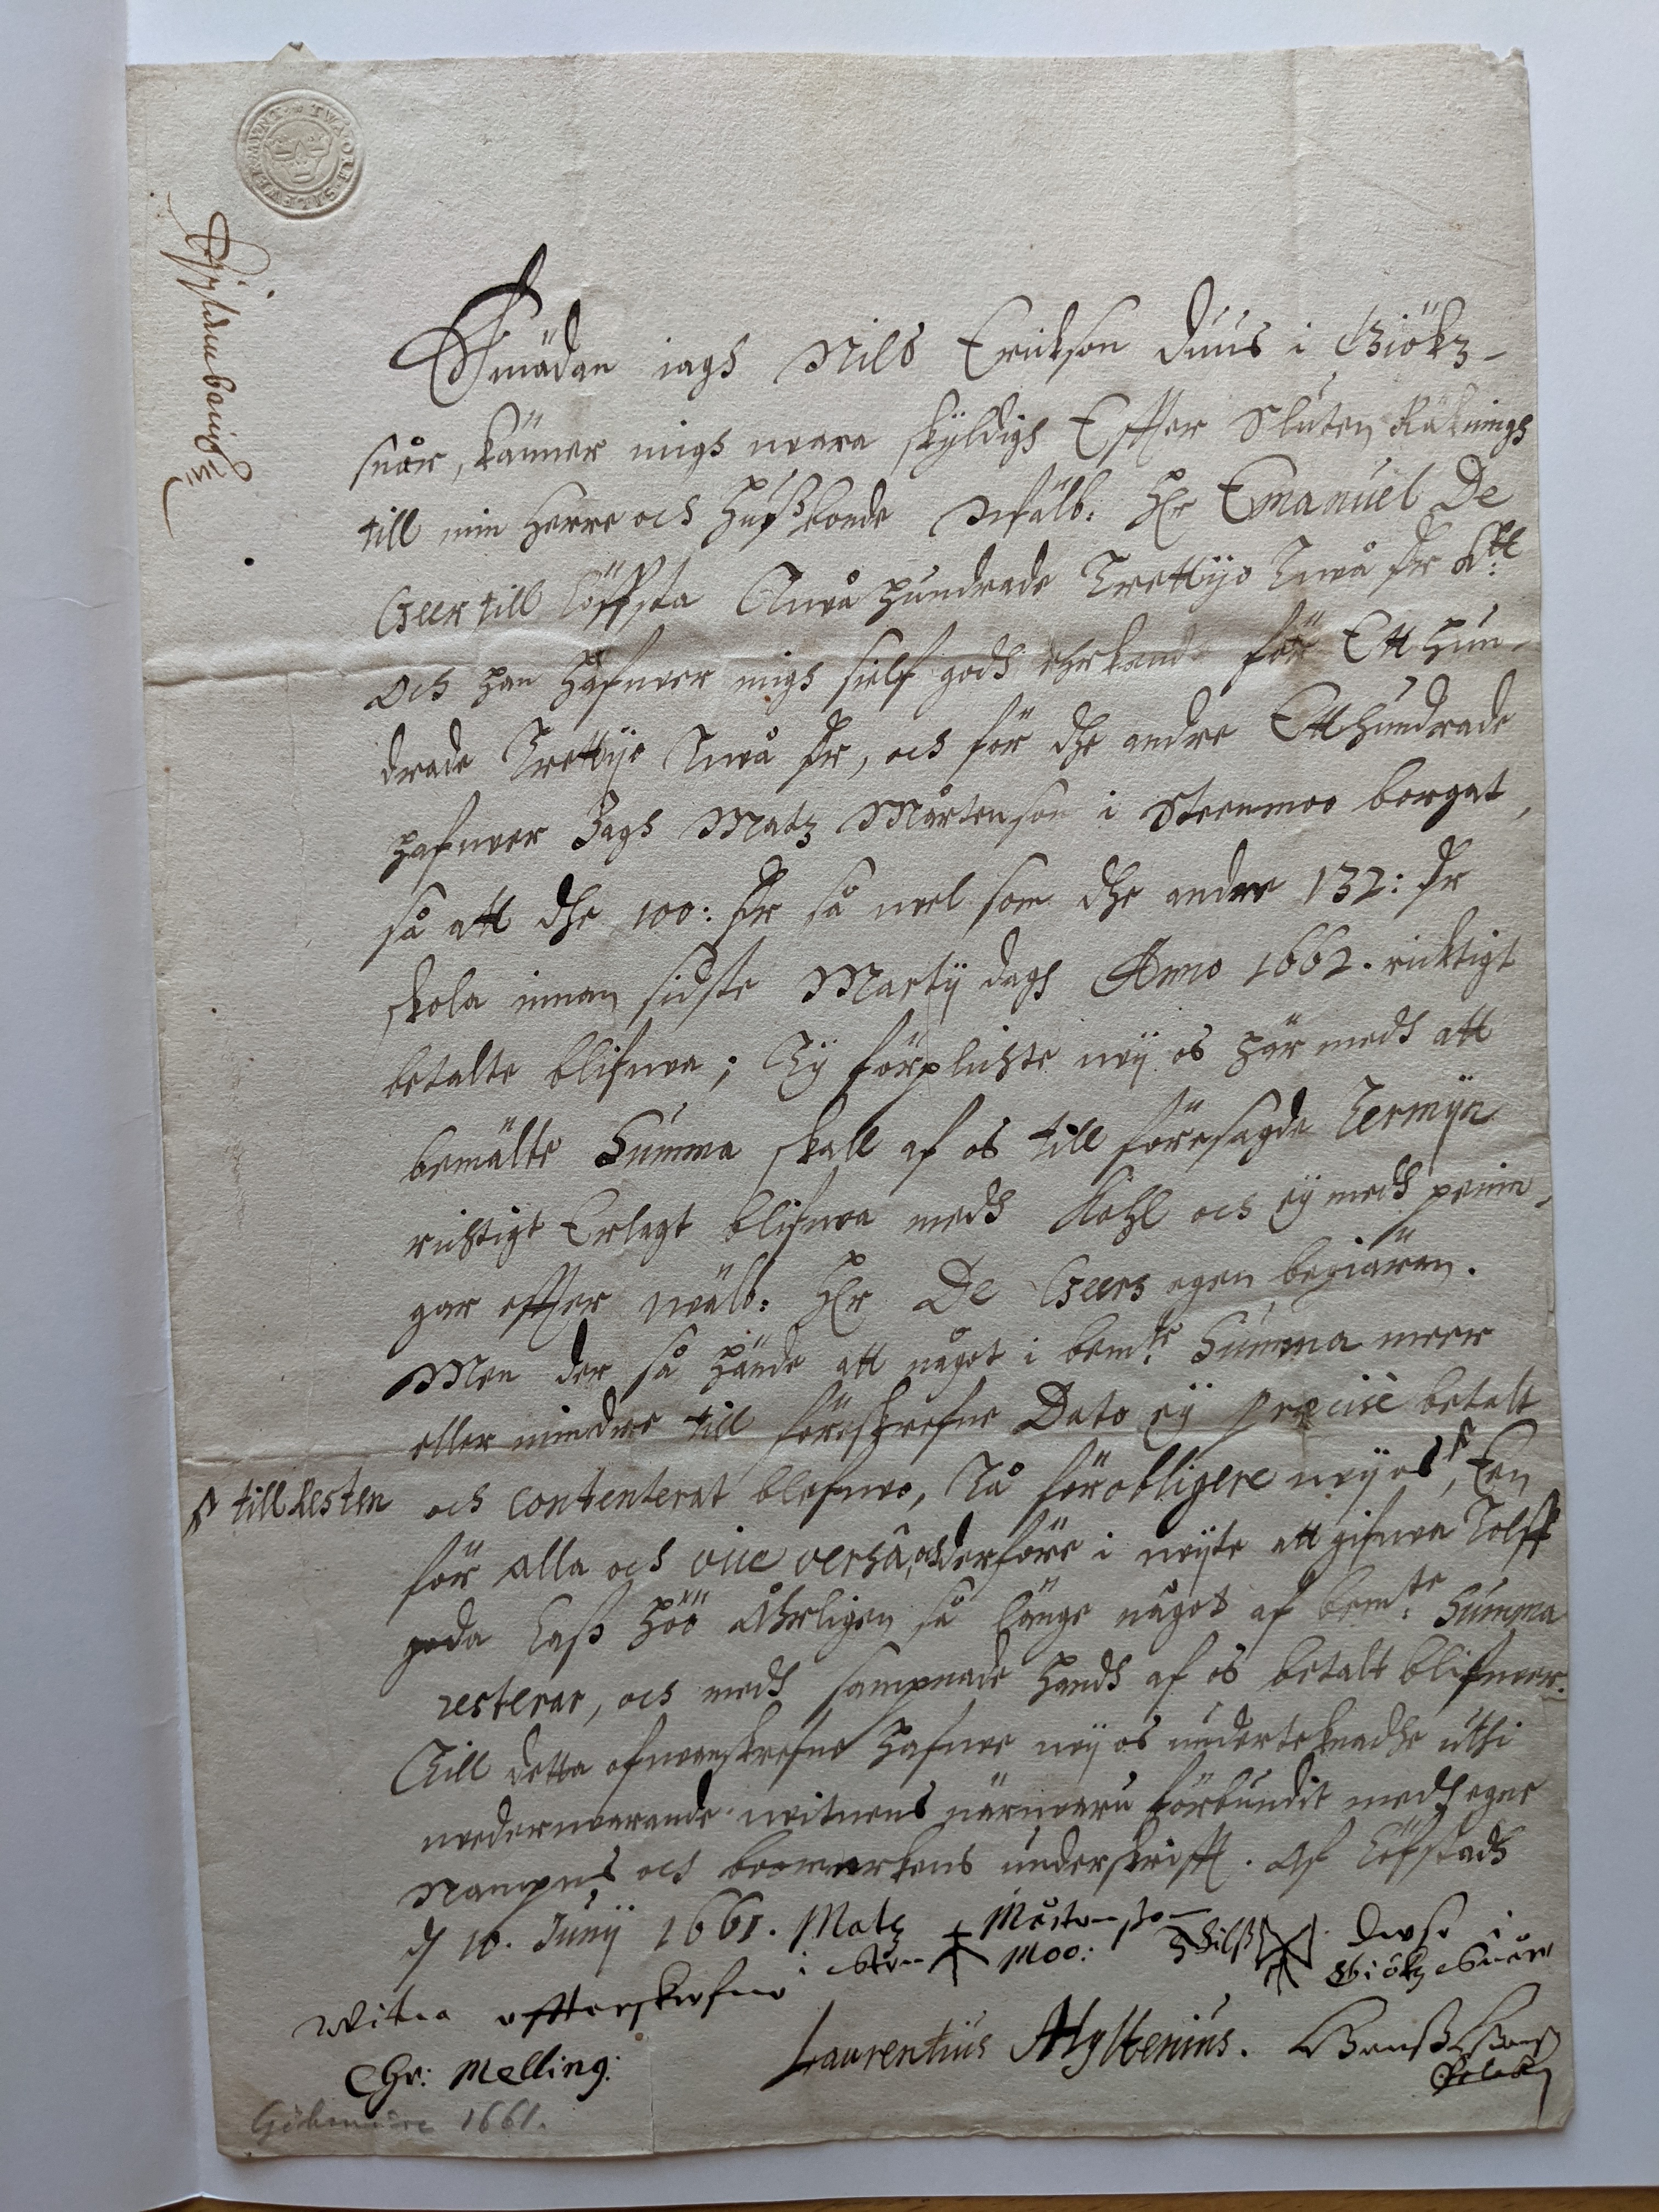 TWA·ÖRE·SILFWER·MYNT
Emädan iagh Nils Erickson Duus i Giökz-
snår, känner migh wara skyldigh Effter Sluten Räkningh
till min Herre och Hußbonde Wälb: Hr Emanuel De
Geer till Löffsta Twå hundrade Trettijo Twå dr K:tt
Och han Hafwer migh sielf godh ehrkendt för Ett Hun-
drade Trettijo Twå dr, och för dhe andre Etthundrade
hafwer Jagh Matz Mårtenson i Steenmoo borgat,
så att dhe 100: dr så wel som dhe andre 132: dr
skola innan sidste Martij dagh Anno 1662. richtigt
betalte blifwa; Ty förplichte wij os här medh att
bemälte Summa skall af os till föresagde Termijn
richtigt Erlagt blifwa medh Kohl och ej medh pennin-
gar effter wälb: Hr De Geers egen begiären.
Men der så hände att något i bem:te Summa meer
eller mindre till föreskrefne Dato ej præcisè betalt
till Resten
och contenterat blefwe, Tå förobligere wij os, Een
för alla och vice versâ, och derföre i wijte att gifwa Tolff
goda Laß Höö åhrligen så länge något af bem:te Summa
resterar, och medh sampnade handh af os betalt blifwer.
Till detta ofwanskrefne hafwe wij os underteknadhe uthi
wederwarande witnens närwaru förbundit medh egne
Nampns och boomerkens underskrifft. Af Löfstadh
d 10. Junij 1661. Matz Mårtensson
i Sten Moo: Nilß Duse i
Giökz Snåre
Witna effterskrefne
Chr: Melling: Laurentius Hyltenius.
Gökmåre 1661.